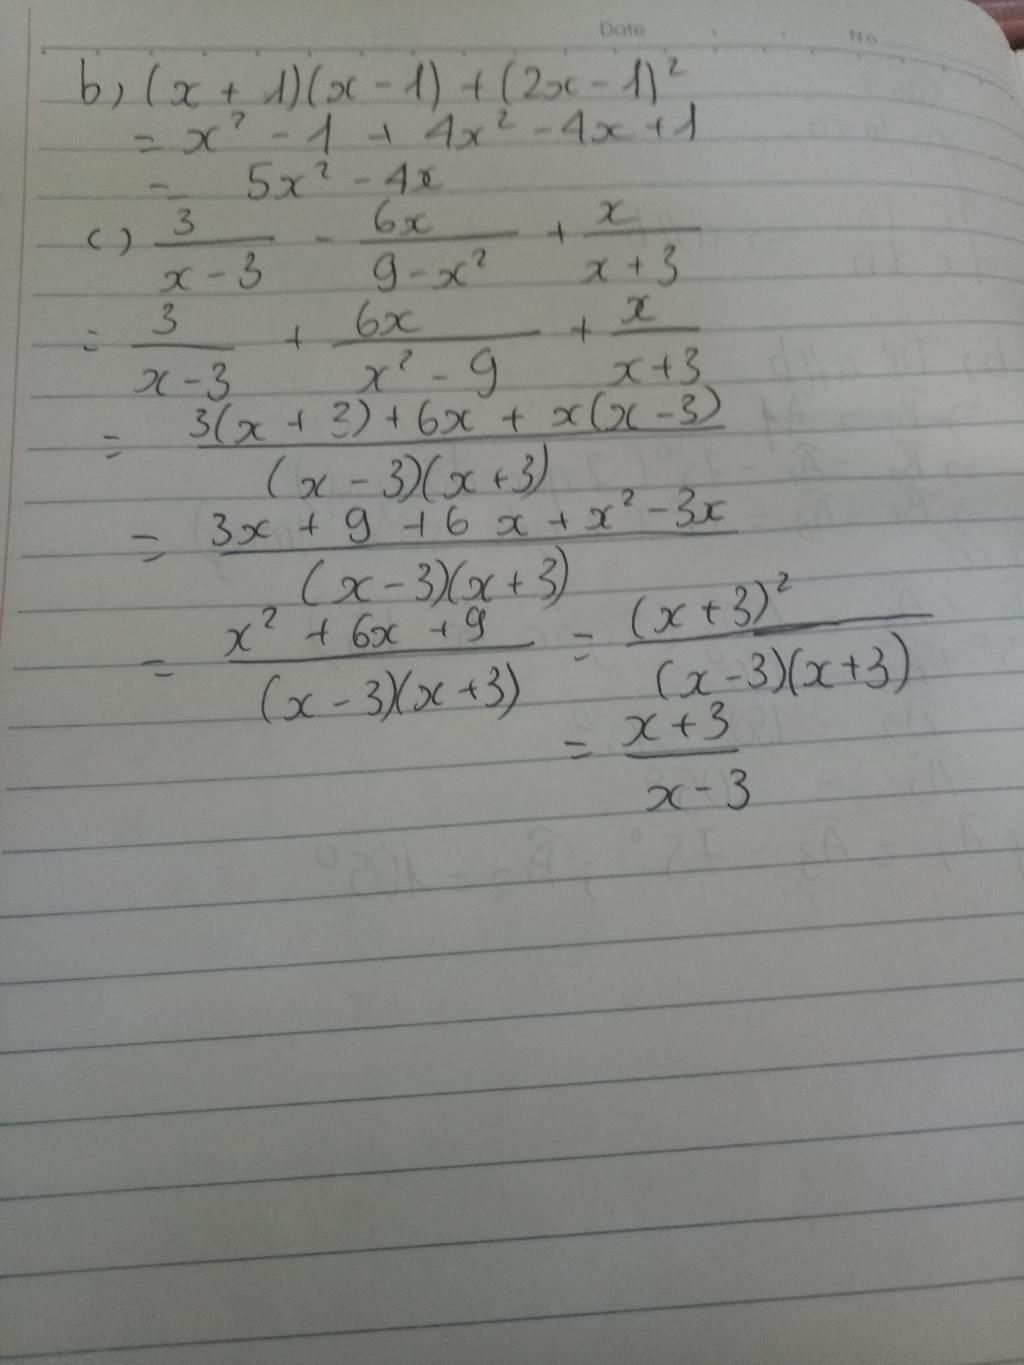 Date No
b) (x + 1)(x - 1) + (2x - 1)²
= x² - 1 + 4x² - 4x + 1
= 5x² - 4x
c) 3/(x - 3) - 6x/(9 - x²) + x/(x + 3)
= 3/(x - 3) + 6x/(x² - 9) + x/(x + 3)
= (3(x + 3) + 6x + x(x - 3))/((x - 3)(x + 3))
= (3x + 9 + 6x + x² - 3x)/((x - 3)(x + 3))
= (x² + 6x + 9)/((x - 3)(x + 3)) = (x + 3)²/((x - 3)(x + 3))
= (x + 3)/(x - 3)